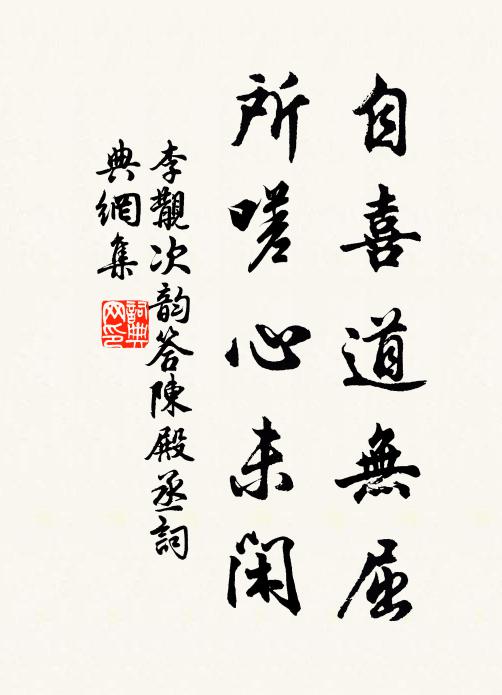 自喜道無屈
所嗟心未閑
李覯次韵答陳殿丞詞
典網集
詞典
网印